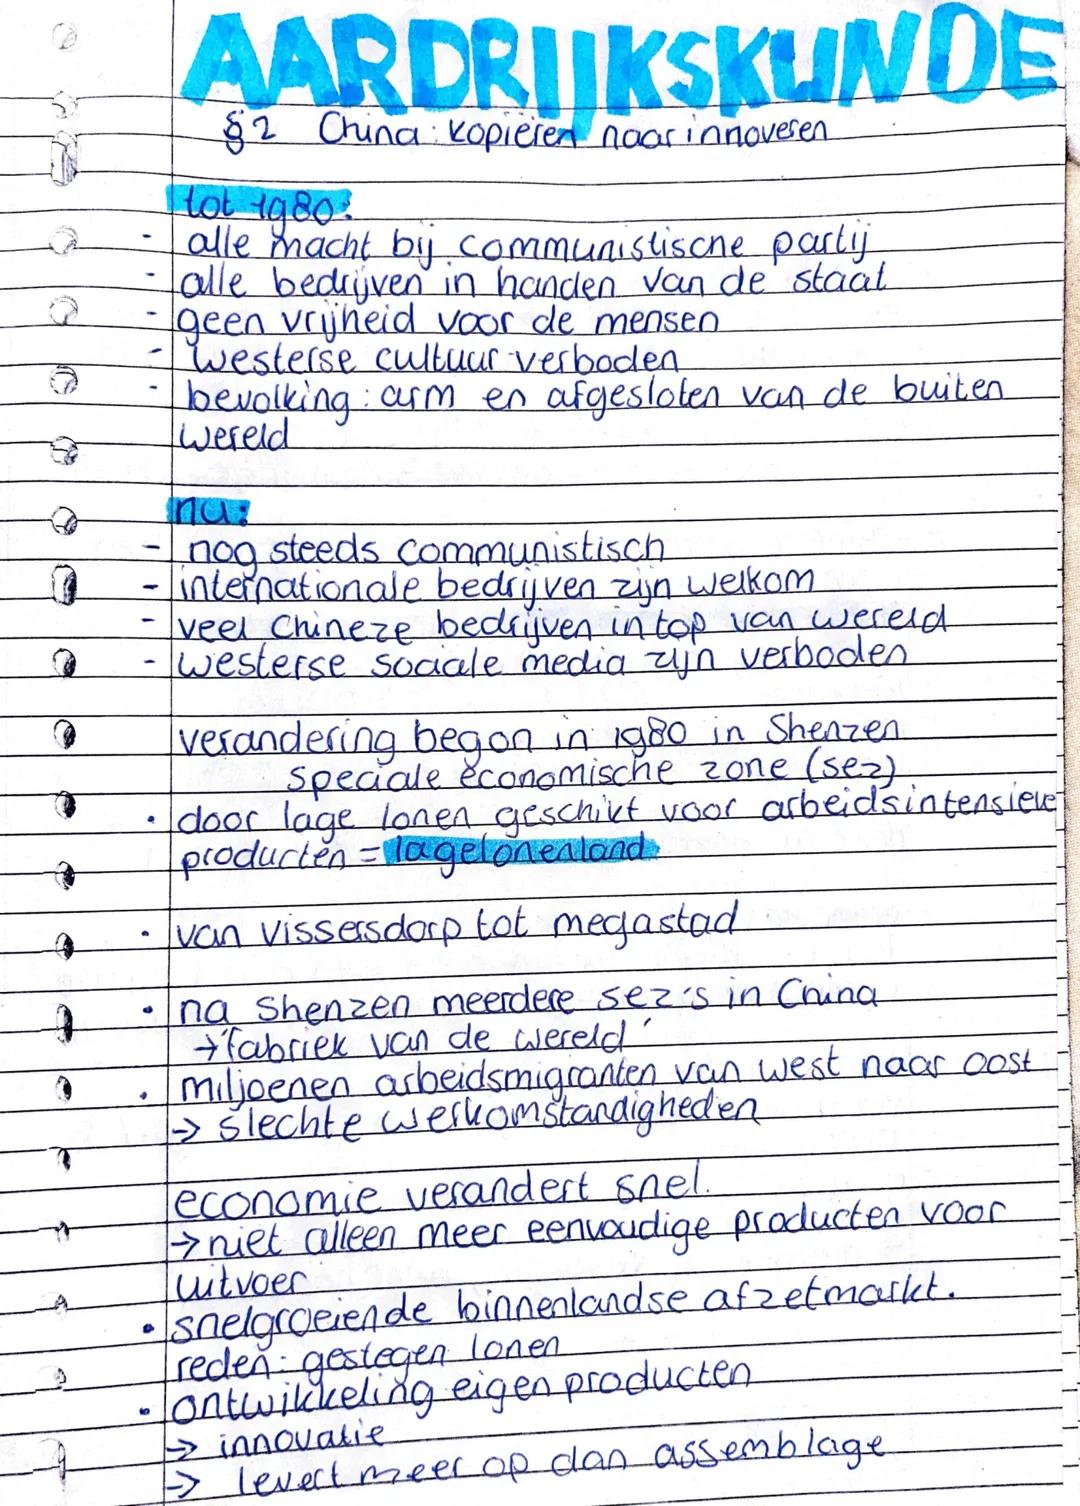 AARDRIJKSKUNDE
§2 China: kopiëren naar innoveren
tot 1980:
- alle macht bij communistische partij
- alle bedrijven in handen van de staat
- geen vrijheid voor de mensen
- westerse cultuur verboden
- bevolking: arm en afgesloten van de buiten
wereld
nu:
- nog steeds communistisch
- internationale bedrijven zijn welkom
- veel Chineze bedrijven in top van wereld
- westerse sociale media zijn verboden
verandering begon in 1980 in Shenzen
speciale economische zone (sez)
• door lage lonen geschikt voor arbeidsintensieve
producten = lagelonenland
• van vissersdorp tot megastad
• na Shenzen meerdere sez's in China
→ 'fabriek van de wereld'
• miljoenen arbeidsmigranten van west naar oost
→ slechte werkomstandigheden
economie verandert snel.
→ niet alleen meer eenvoudige producten voor
uitvoer
• snelgroeiende binnenlandse afzetmarkt.
reden: gestegen lonen
• ontwikkeling eigen producten
→ innovatie
→ levert meer op dan assemblage